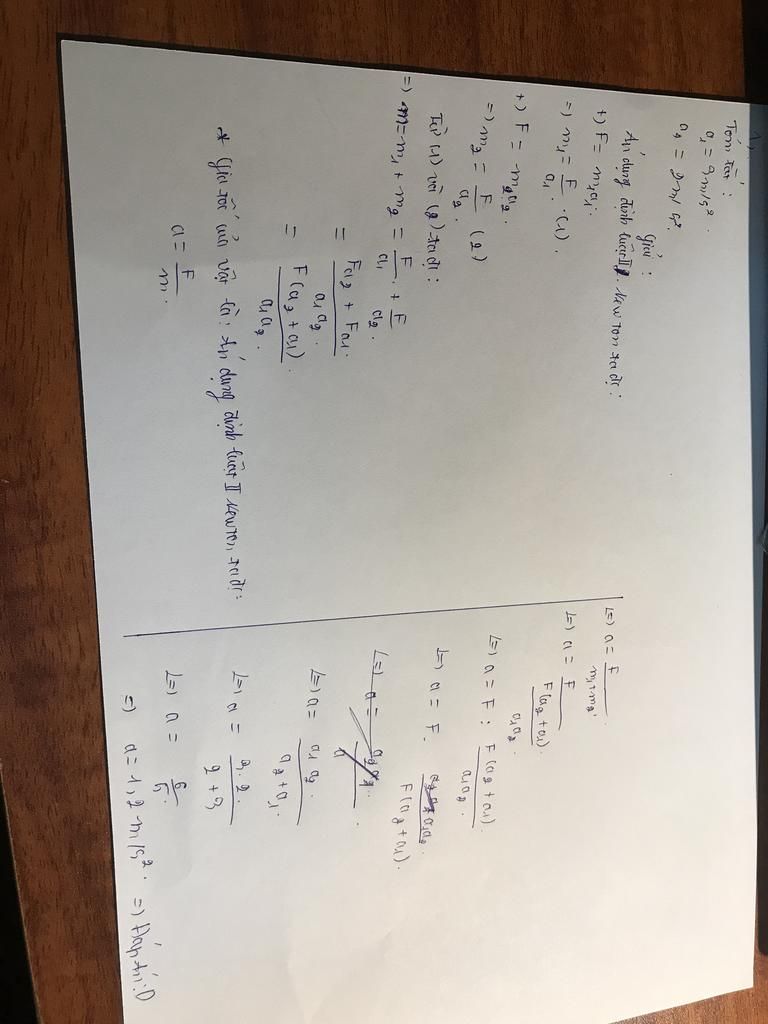 1,
Tóm tắt:
a₁ = 3m/s².
a₂ = 2m/s².
Giải:
Áp dụng định luật II. Newton ta có:
+) F = m₁a₁.
=) m₁ = F/a₁. (1).
+) F = m₂a₂.
=) m₂ = F/a₂ (2)
Từ (1) và (2) ta có:
=) m = m₁ + m₂ = F/a₁ + F/a₂.
= (Fa₂ + Fa₁)/(a₁a₂).
= F(a₂ + a₁)/(a₁a₂).
* Gia tốc của vật là: Áp dụng định luật II Newton, ta có:
a = F/m.
(=) a = F/(m₁+m₂)
(=) a = F/(F(a₂ + a₁)/(a₁a₂))
(=) a = F : F(a₂ + a₁)/(a₁a₂).
(=) a = F. a₁a₂/(F(a₂ + a₁)).
(=) a = a₁a₂/(a₂ + a₁).
(=) a = (3.2)/(2+3)
(=) a = 6/5.
=) a = 1,2 m/s². =) Đáp Án: D